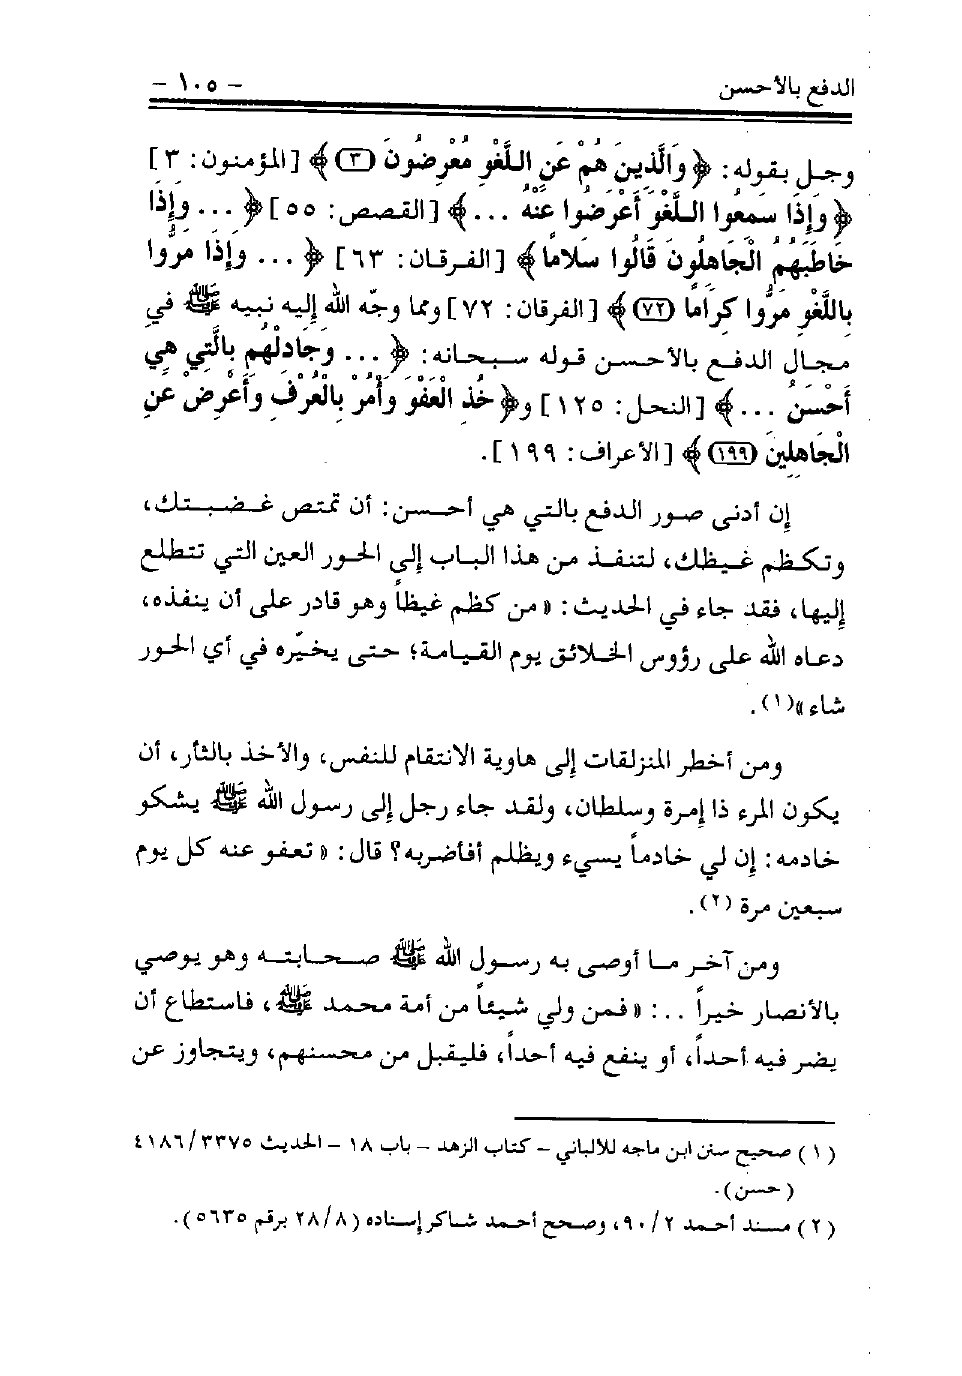 الدفع بالأحسن
- ١٠٥ -
وجل بقوله: ﴿ وَالَّذِينَ هُمْ عَنِ اللَّغْوِ مُعْرِضُونَ (٣) ﴾ [المؤمنون: ٣]
﴿ وَإِذَا سَمِعُوا اللَّغْوَ أَعْرَضُوا عَنْهُ ... ﴾ [القصص: ٥٥] ﴿ ... وَإِذَا
خَاطَبَهُمُ الْجَاهِلُونَ قَالُوا سَلَامًا ﴾ [الفرقان: ٦٣] ﴿ ... وَإِذَا مَرُّوا
بِاللَّغْوِ مَرُّوا كِرَامًا (٧٢) ﴾ [الفرقان: ٧٢] ومما وجّه الله إليه نبيه ﷺ في
مجال الدفع بالأحسن قوله سبحانه: ﴿ ... وَجَادِلْهُم بِالَّتِي هِيَ
أَحْسَنُ ... ﴾ [النحل: ١٢٥] و﴿ خُذِ الْعَفْوَ وَأْمُرْ بِالْعُرْفِ وَأَعْرِضْ عَنِ
الْجَاهِلِينَ (١٩٩) ﴾ [الأعراف: ١٩٩].
إن أدنى صور الدفع بالتي هي أحسن: أن تمتص غضبتك،
وتكظم غيظك، لتنفذ من هذا الباب إلى الحور العين التي تتطلع
إليها، فقد جاء في الحديث: « من كظم غيظاً وهو قادر على أن ينفذه،
دعاه الله على رؤوس الخلائق يوم القيامة؛ حتى يخيّره في أي الحور
شاء »(١).
ومن أخطر المنزلقات إلى هاوية الانتقام للنفس، والأخذ بالثأر، أن
يكون المرء ذا إمرة وسلطان، ولقد جاء رجل إلى رسول الله ﷺ يشكو
خادمه: إن لي خادماً يسيء ويظلم أفأضربه؟ قال: « تعفو عنه كل يوم
سبعين مرة (٢).
ومن آخر ما أوصى به رسول الله ﷺ صحابته وهو يوصي
بالأنصار خيراً ..: « فمن ولي شيئاً من أمة محمد ﷺ، فاستطاع أن
يضر فيه أحداً، أو ينفع فيه أحداً، فليقبل من محسنهم، ويتجاوز عن
(١) صحيح سنن ابن ماجه للألباني - كتاب الزهد - باب ١٨ - الحديث ٤١٨٦/٣٣٧٥
(حسن).
(٢) مسند أحمد ٩٠/٢، وصحح أحمد شاكر إسناده (٢٨/٨ برقم ٥٦٣٥).